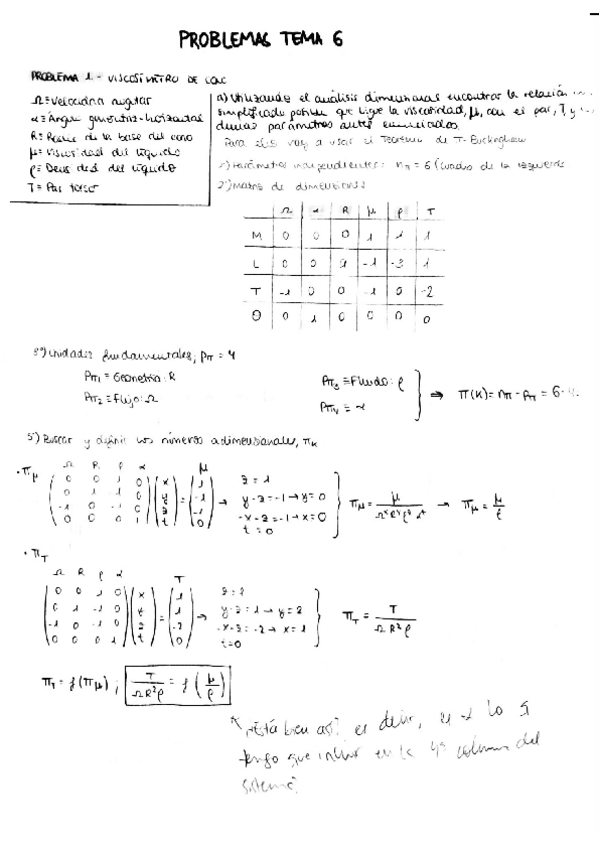 PROBLEMAS TEMA 6
PROBLEMA 1.- VISCOSÍMETRO DE CONO
Ω≡Velocidad angular
α≡Ángulo generatriz-horizontal
R≡ Radio de la base del cono
μ≡Viscosidad del líquido
ρ≡ Densidad del líquido
T≡ Par torsor
a) Utilizando el análisis dimensional encontrar la relación ...
simplificada posible que ligue la viscosidad, μ, con el par, T y ...
demás parámetros antes enunciados.
Para ello voy a usar el Teorema de π-Buckingham
1º) Parámetros independientes: nπ = 6 (cuadro de la izquierda
2º) Matriz de dimensiones
Ω α R μ ρ T
M 0 0 0 1 1 1
L 0 0 1 -1 -3 1
T -1 0 0 -1 0 -2
Θ 0 1 0 0 0 0
3º) Unidades fundamentales; Pπ = 4
Pπ1 ≡ Geometría: R
Pπ2 ≡ Flujo: Ω
Pπ3 ≡ Fluido: ρ
Pπ4 = α
⇒ π(K) = nπ - Pπ = 6-4
5º) Buscar y definir los números adimensionales, πK
· πμ
Ω R ρ α μ
0 0 1 0 x 1
0 1 -1 0 y -1
-1 0 -1 0 z -1
0 0 0 1 t 0
z = 1
y-z = -1 → y = 0
-x-z = -1 → x = 0
t = 0
πμ = μ / Ω^x R^y ρ^z α^t → πμ = μ/ρ
· πT
Ω R ρ α T
0 0 1 0 x 1
0 1 -1 0 y 1
-1 0 -1 0 z -2
0 0 0 1 t 0
y-z = 1 → y = 2
-x-z = -2 → x = 1
t=0
πT = T / Ω R² ρ
πT = f(πμ) ; T / Ω R² ρ = f (μ/ρ)
¿Está bien así? es decir, el α lo
tengo que incluir en la 4ª columna del
sistema?